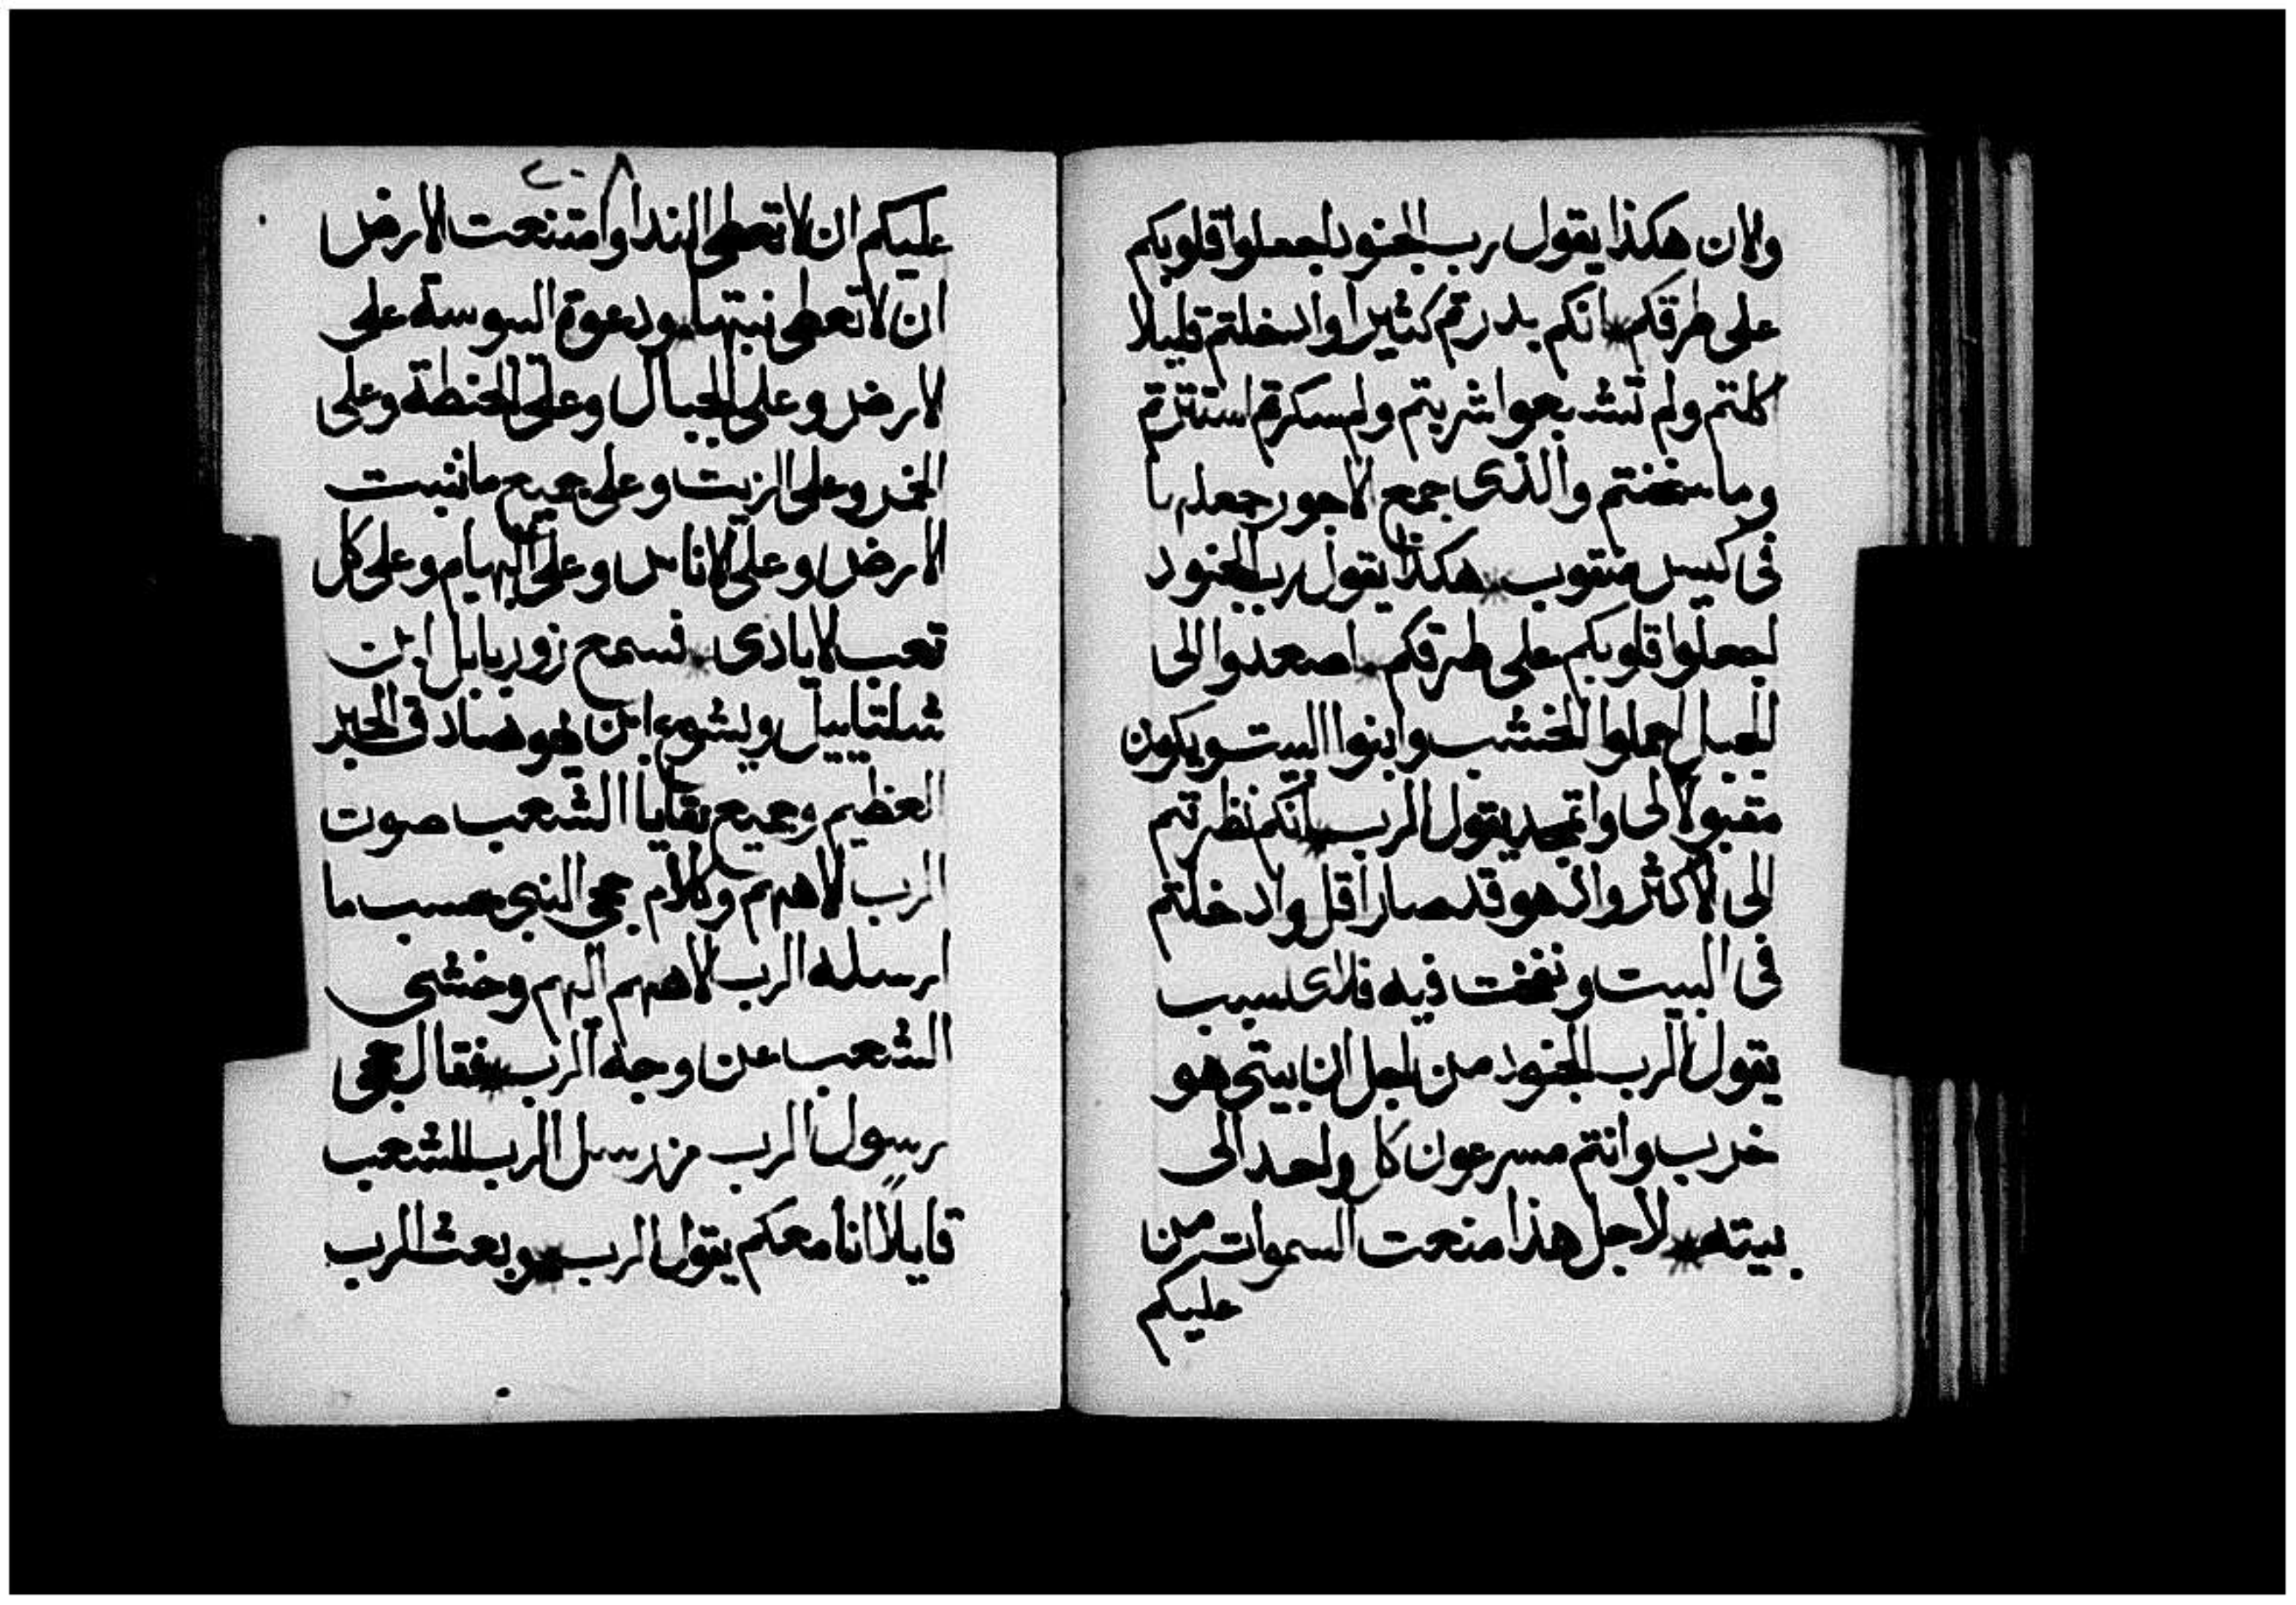 ولان هكذا يقول رب الجنود اجعلوا قلوبكم
على طرقكم * انكم بدرتم كثيرا وادخلتم قليلا
كلتم ولم تشبعوا شربتم ولم سكرتم استترتم
وما سخنتم والذى جمع الاجور جمعلها
فى كيس منقوب * هكذا يقول رب الجنود
اجعلوا قلوبكم على طرقكم * اصعدوا الى
الجبل احملوا الخشب وابنوا البيت ويكون
مقبولا لى واتمجد يقول الرب * انكم نظرتم
الى الاكثر واذ هو قد صار اقل وادخلتم
فى البيت ونفخت فيه فلاى سبب
يقول الرب الجنود من اجل ان بيتى هو
خرب وانتم مسرعون كل واحد الى
بيته * لاجل هذا منعت السموات من
عليكم
٢٠٨
عليكم ان لا تعطى الندا وامتنعت الارض
ان لا تعطى نبتها * ودعوة السوسة على
لارض وعلى الجبال وعلى الحنطة وعلى
الخمر وعلى الزيت وعلى جميع ما تنبت
الارض وعلى الاناس وعلى البهايم وعلى كل
تعب الايادى * فسمع زوربابل ابن
شلتاييل ويشوع ابن يهوصادق الحبر
العظيم وجميع بقايا الشعب صوت
الرب لاههم وكلام حجى النبى بحسب ما
ارسله الرب لاههم اليهم وخشى
الشعب من وجه الرب * فقال حجى
رسول الرب من رسل الرب للشعب
قايلًا انا معكم يقول الرب * وبعث الرب